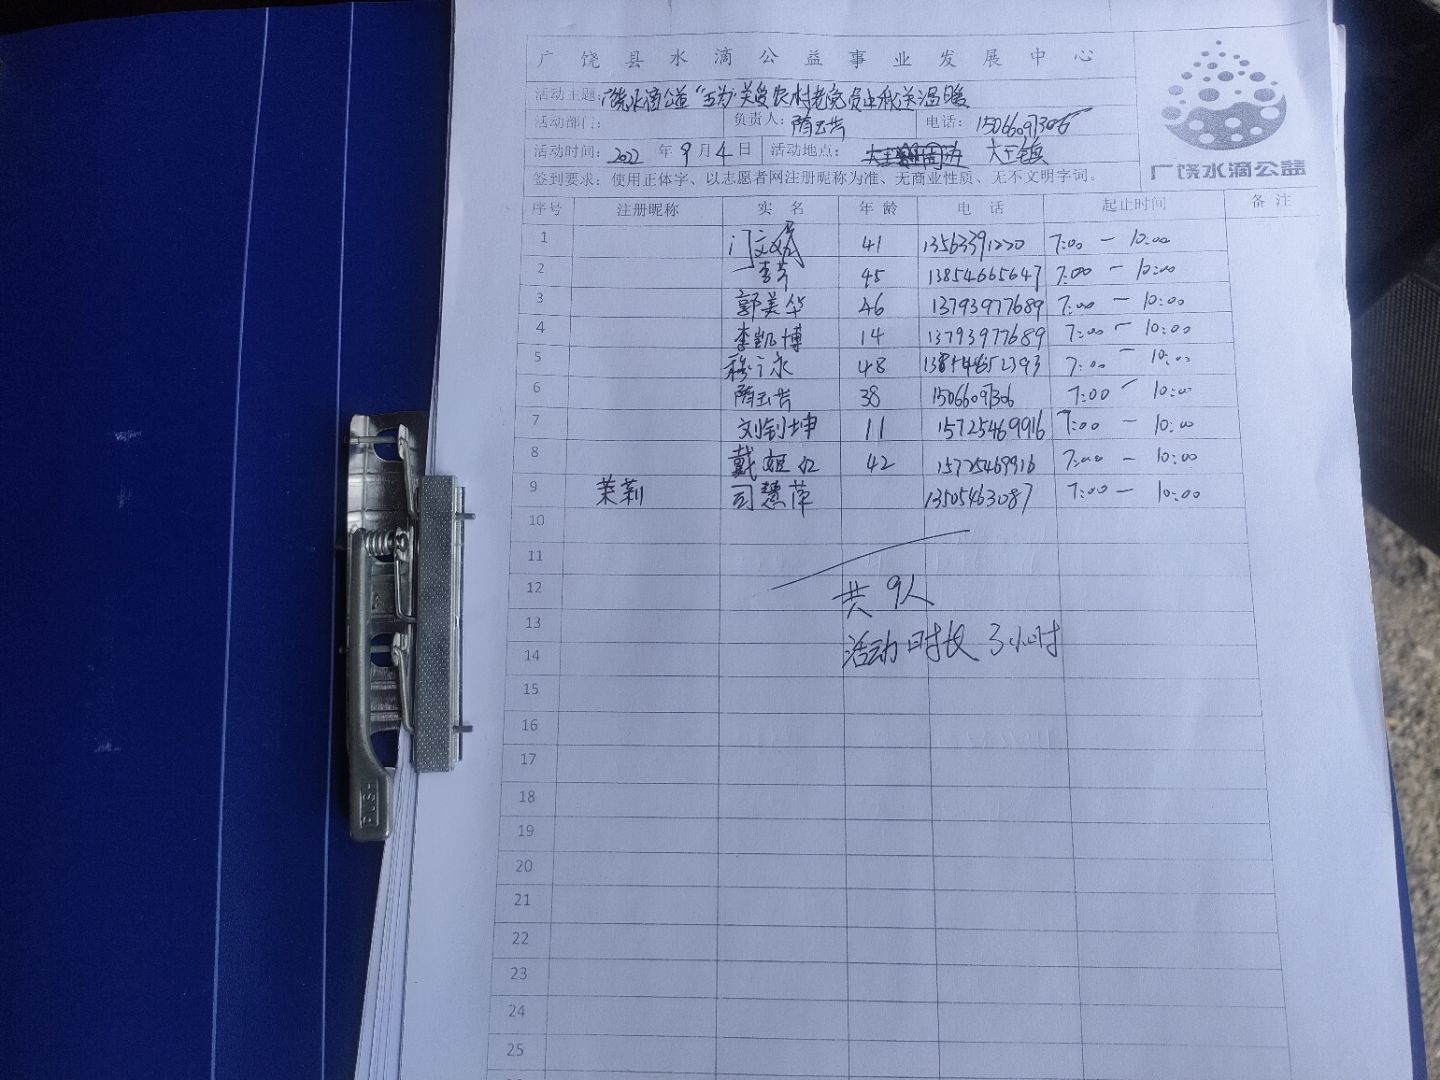 广饶县水滴公益事业发展中心
活动主题：广饶水滴公益"五为"关爱农村老党员中秋送温暖
活动部门： 负责人：隋玉芳 电话：15066097306
活动时间：2022年9月4日 活动地点： 大王镇
签到要求：使用正体字、以志愿者网注册昵称为准、无商业性质、无不文明字词。
广饶水滴公益
序号 注册昵称 实名 年龄 电话 起止时间 备注
1 41 13563391220 7:00 — 10:00
2 李芳 45 13854665647 7:00 — 10:00
3 郭美华 46 13793977689 7:00 — 10:00
4 李凯博 14 13793977689 7:00 — 10:00
5 48 7:00 — 10:00
6 隋玉芳 38 15066097306 7:00 — 10:00
7 刘钊坤 11 15725469916 7:00 — 10:00
8 戴姬红 42 15725469916 7:00 — 10:00
9 茉莉 司慧萍 13505463087 7:00 — 10:00
10
11
12 共9人
13
14 活动时长3小时
15
16
17
18
19
20
21
22
23
24
25
PUSH